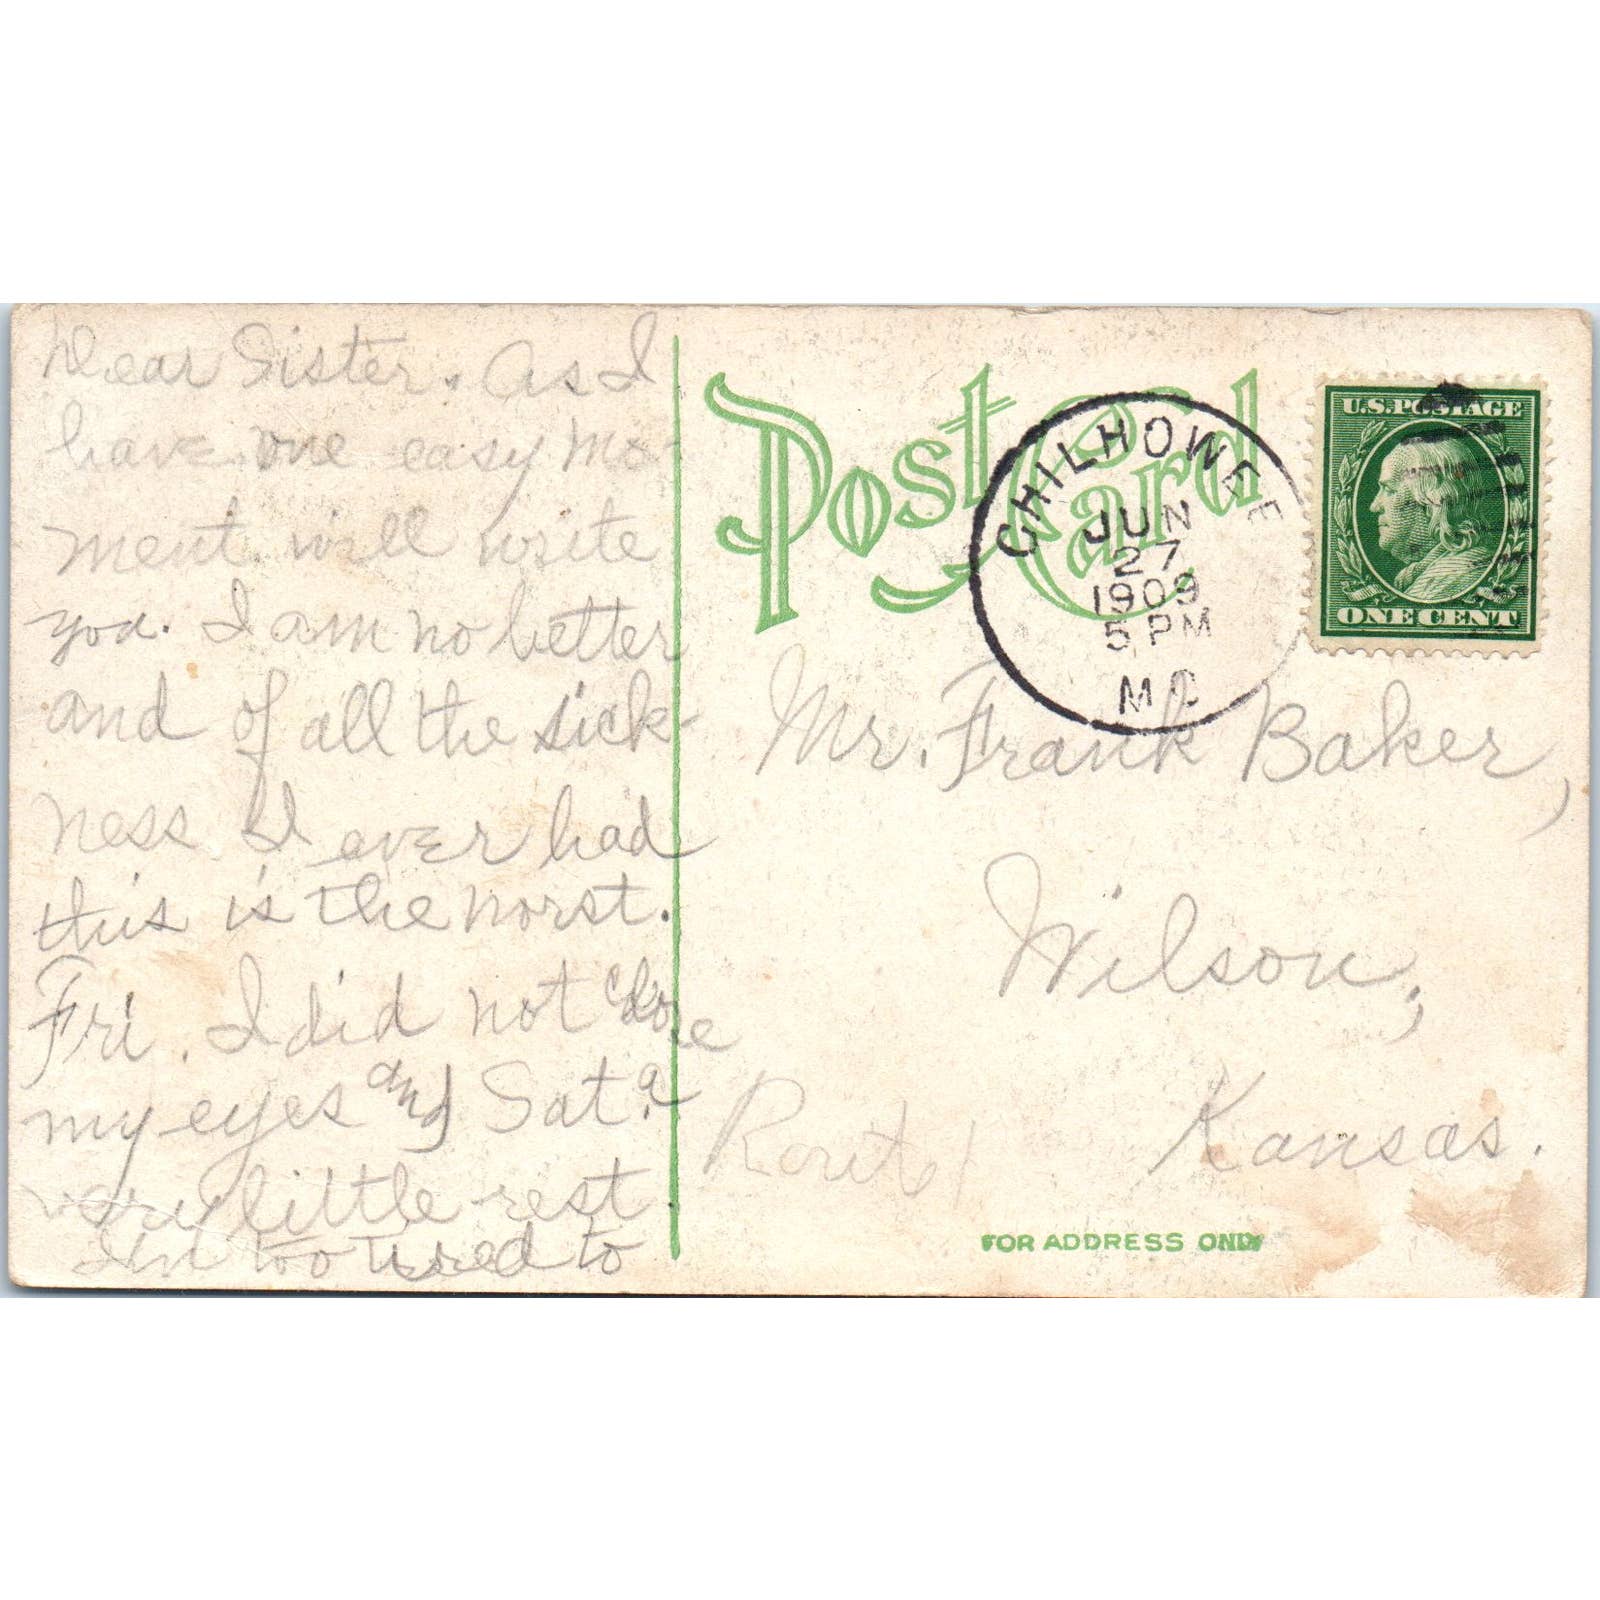 Dear Sister. As I
have one easy mo-
ment will write
you. I am no better
and of all the sick-
ness I ever had
this is the worst.
Fri. I did not close
my eyes and Sat. a
very little rest
Am too tired to
Post Card
CHILHOWEE
JUN
27
1909
5 PM
MO
U.S. POSTAGE
ONE CENT
Mr. Frank Baker,
Wilson,
Kansas.
Route 1
FOR ADDRESS ONLY